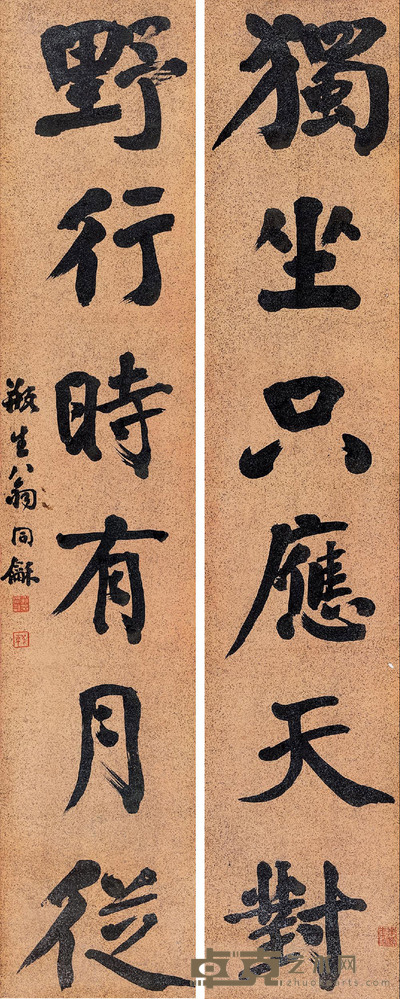 獨坐只應天對
野行時有月從
瓶生翁同龢
卓克艺术网